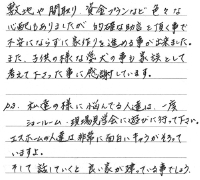 敷地や間取り、資金プランなど色々な
心配もありましたが的確な助言と頂く事で
不安にならずに家作りを進める事が出来ました。
また、子供の様な愛犬の事も家族として
考えて下さった事に感謝しています。
P.S. 私達の様に悩んでる人達は、一度
ショールーム・現場見学会に遊びに行って下さい。
エスホームの人達は非常に面白いキャラがそろって
いますよ。
そして話していくと良い家が建っている事でしょう。